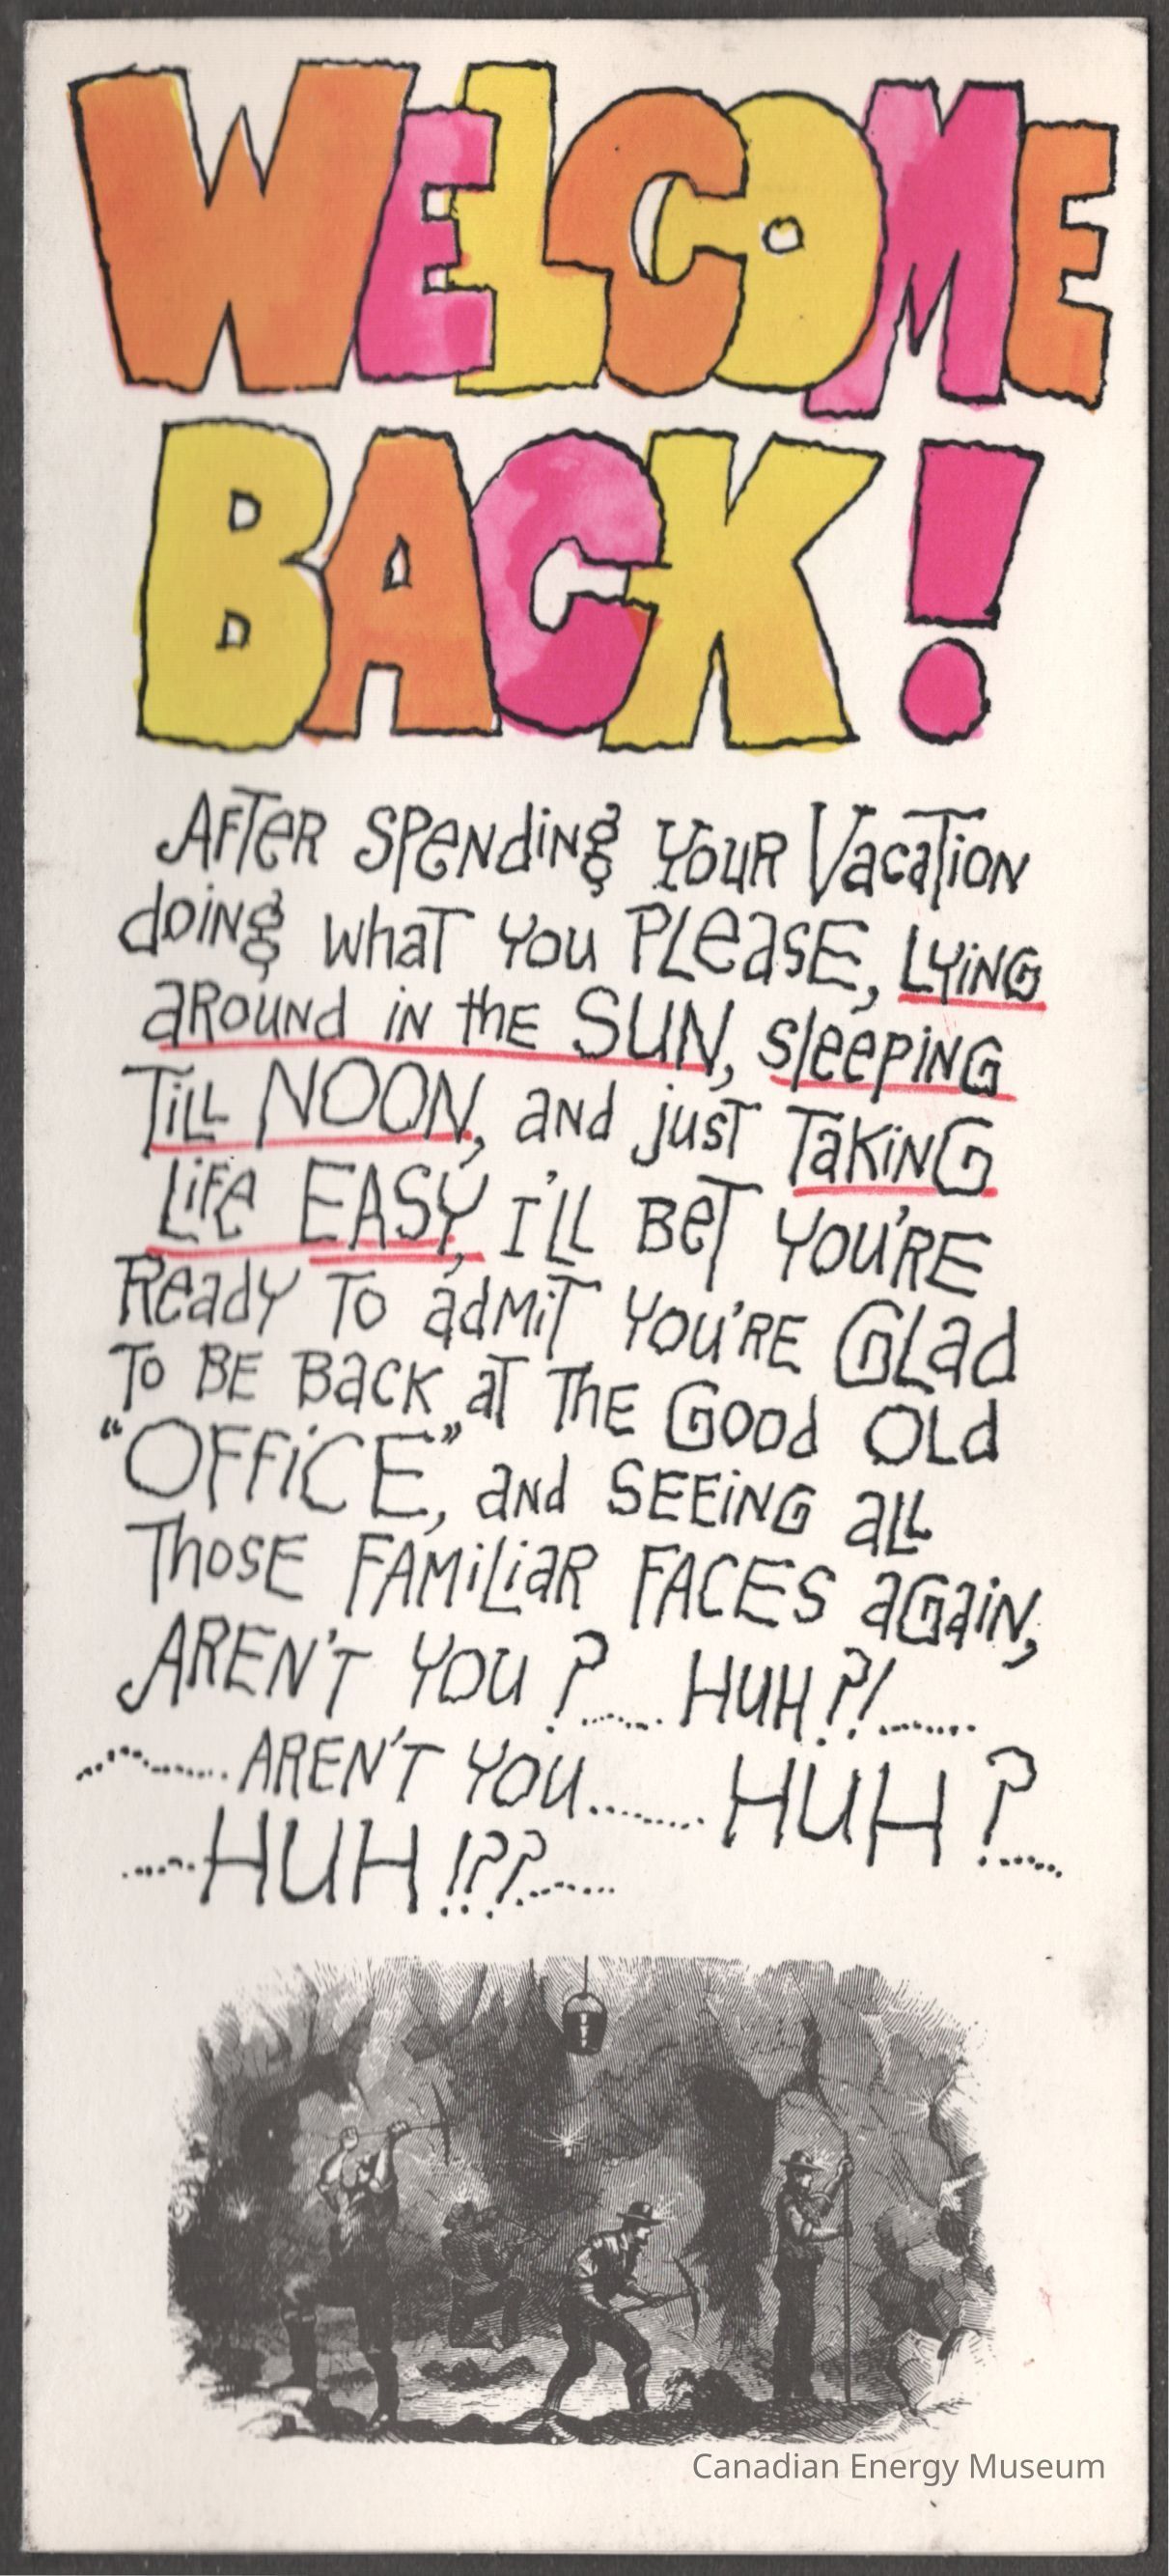 WELCOME
BACK!
AFTER SPENDING YOUR VACATION
DOING WHAT YOU PLEASE, LYING
AROUND IN THE SUN, SLEEPING
TILL NOON, AND JUST TAKING
LIFE EASY, I'LL BET YOU'RE
READY TO ADMIT YOU'RE GLAD
TO BE BACK AT THE GOOD OLD
"OFFICE", AND SEEING ALL
THOSE FAMILIAR FACES AGAIN,
AREN'T YOU?...... HUH?!.......
..........AREN'T YOU........ HUH?.....
.....HUH!??.......
Canadian Energy Museum